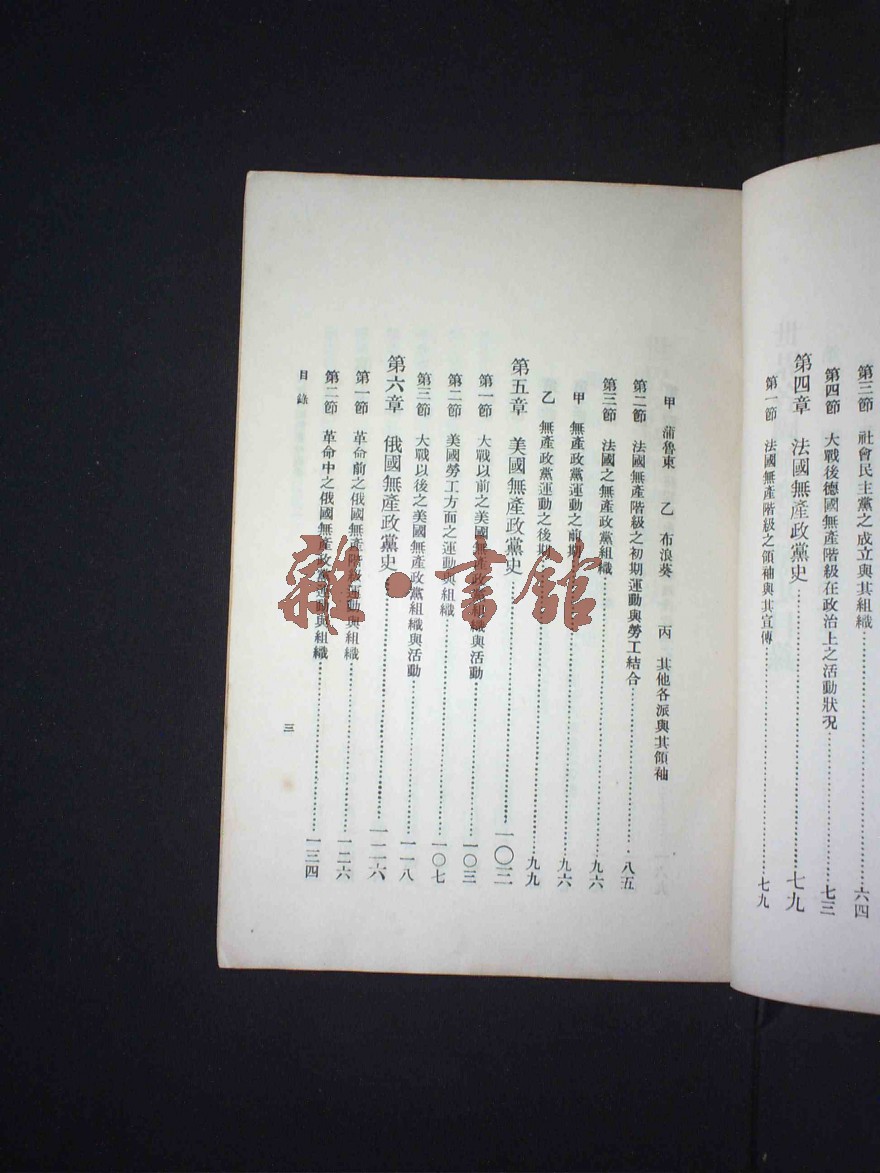 第三節 社會民主黨之成立與其組織……六四
第四節 大戰後德國無產階級在政治上之活動狀況……七三
第四章 法國無產政黨史……七九
第一節 法國無產階級之領袖與其宣傳……七九
甲 蒲魯東 乙 布浪葵 丙 其他各派與其領袖
第二節 法國無產階級之初期運動與勞工結合……八五
第三節 法國之無產政黨組織……九六
甲 無產政黨運動之前期……九六
乙 無產政黨運動之後期……九九
第五章 美國無產政黨史……一〇三
第一節 大戰以前之美國無產政黨組織與活動……一〇三
第二節 美國勞工方面之運動與組織……一〇七
第三節 大戰以後之美國無產政黨組織與活動……一一八
第六章 俄國無產政黨史……一二六
第一節 革命前之俄國無產階級運動與組織……一二六
第二節 革命中之俄國無產政黨運動與組織……一三四
目錄
三
雜·書館